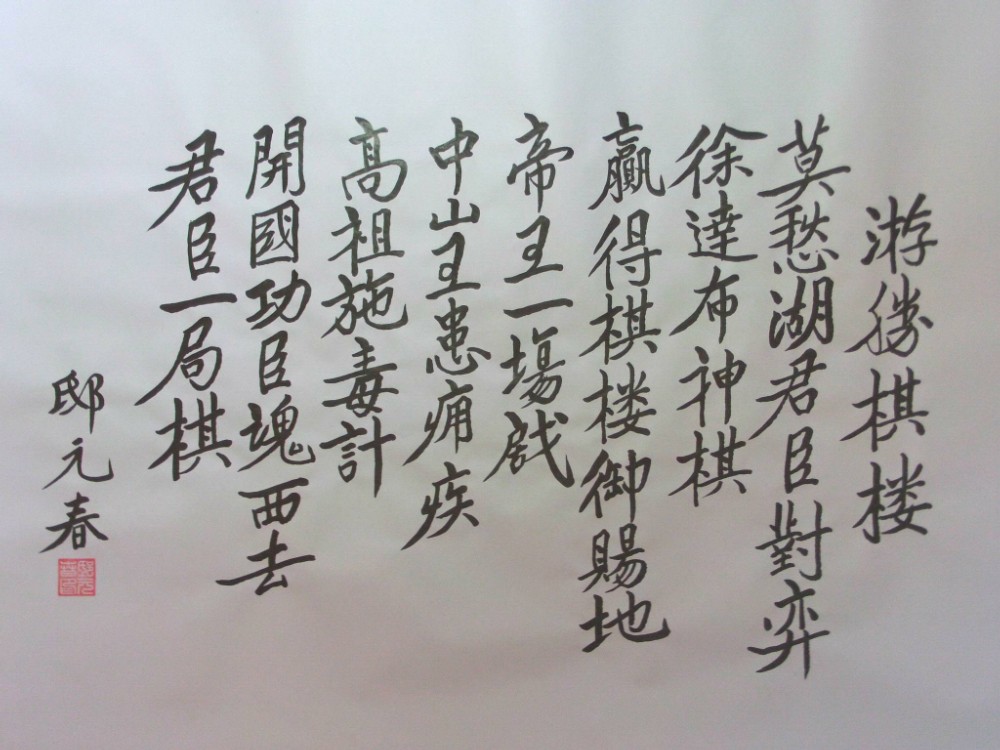 游勝棋楼
莫愁湖君臣對弈
徐達布神棋
贏得棋楼御賜地
帝王一場戲
中山王患痈疾
高祖施毒計
開國功臣魂西去
君臣一局棋
邸元春